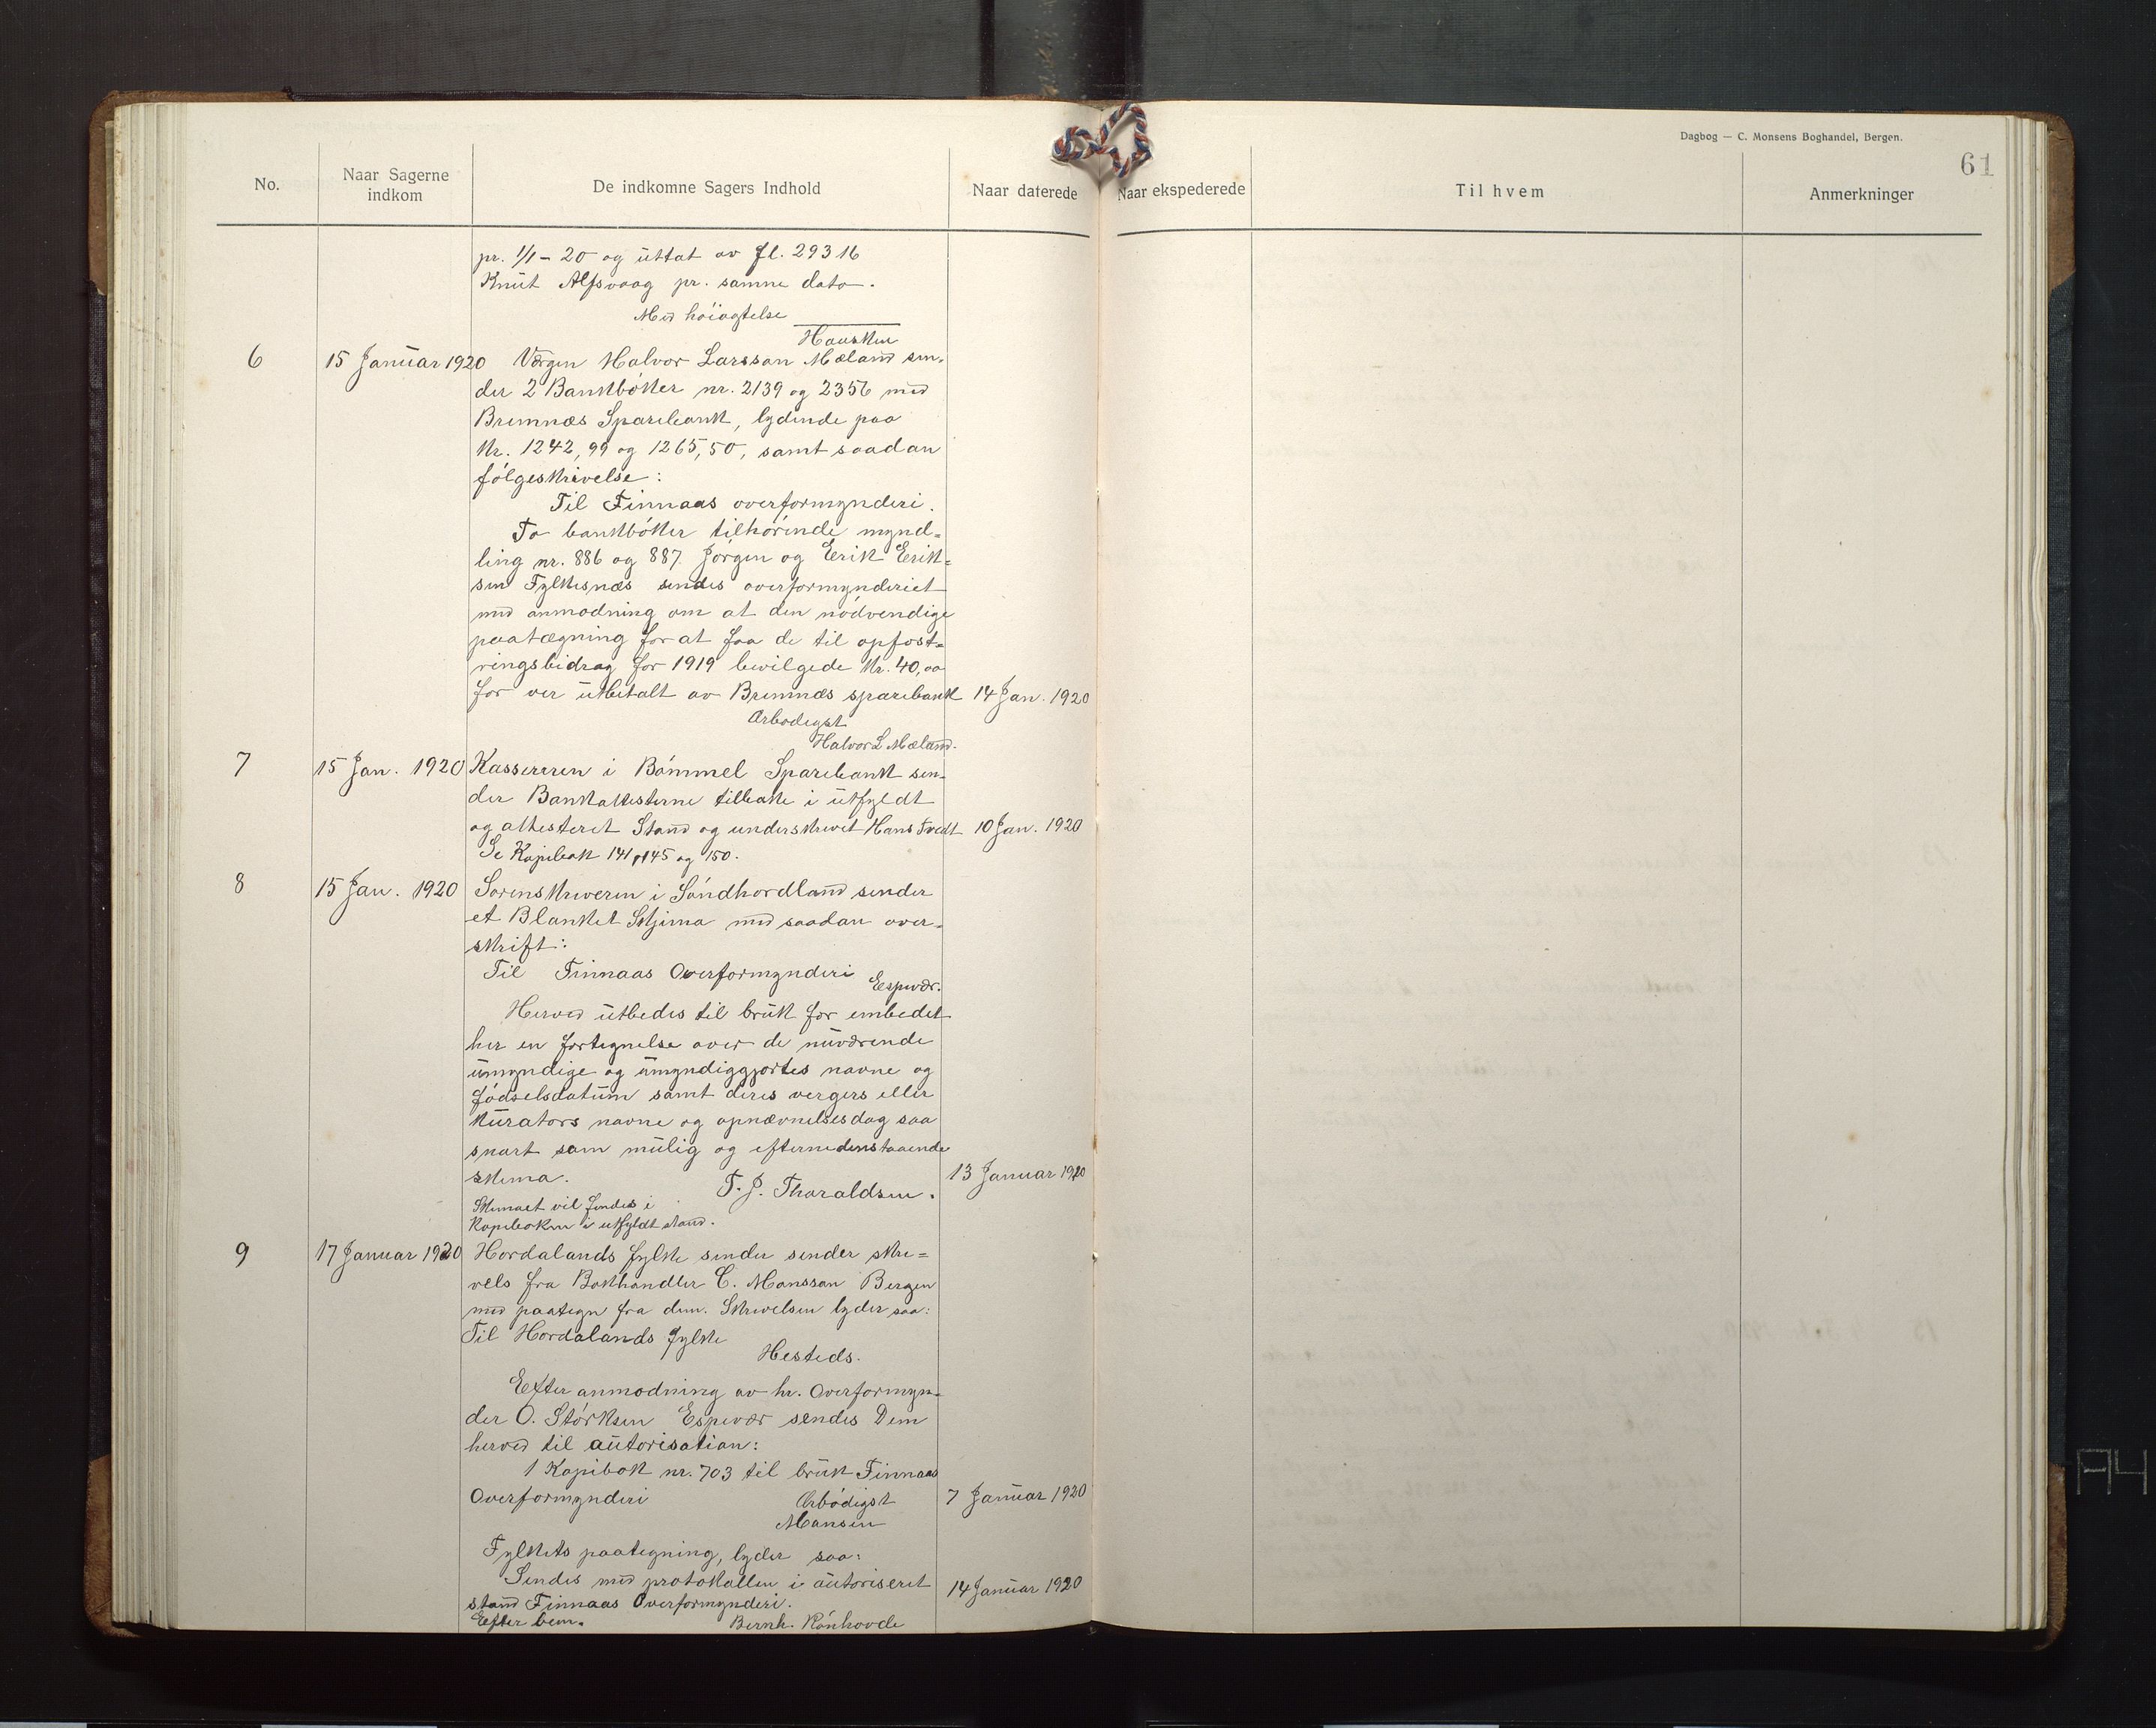 Dagbog — C. Monsens Boghandel, Bergen.
61
No.
Naar Sagerne indkom
De indkomne Sagers Indhold
Naar daterede
Naar ekspederede
Til hvem
Anmerkninger
pr. 1/1 - 20 og uttat av fl. 293 16
Knut Alfsvaag pr. samme dato.
Med høiagtelse
Hausken
6 15 Januar 1920 Værgen Halvor Larsson Mæland sen-
der 2 Bankbøker nr. 2139 og 2356 med
Bremnæs Sparebank, lydende paa
kr. 1242,99 og 1265,50, samt saadan
følgeskrivelse:
Til Finnaas overformynderi.
To bankbøker tilhørende mynd-
ling nr. 886 og 887. Jørgen og Eerik Eerik-
sen Fylkesnæs sendes overformynderiet
med anmodning om at den nødvendige
paatægning for at faa de til opfost-
ringsbidrag for 1919 bevilgede kr. 40,00
for ver utbetalt av Bremnæs sparebank 14 Jan. 1920
Ærbødigst
Halvor L Mæland.
7 15 Jan. 1920 Kassereren i Bømmel Sparebank sen-
der Bankattesterne tilbake i utfyldt
og attesteret Stand og underskrevet Hans Tvedt 10 Jan. 1920
Se Kopibok 141, 145 og 150.
8 15 Jan. 1920 Sorenskriveren i Søndhordland sender
et Blanket Skjema med saadan over-
skrift:
Til Finnaas Overformynderi
Espevær.
Herved utbedes til bruk for embedet
her en fortegnelse over de nuværende
umyndige og umyndiggjortes navne og
fødselsdatum samt deres vergers eller
kurators navne og opnævnelsesdag saa
snart som mulig og efter nedenstaaende
skema. 13 Januar 1920
T. J. Tharaldsen.
Skemaet vil findes i
Kopiboken i utfyldt stand.
9 17 Januar 1920 Hordalands fylke sender sender skri-
vels fra Bokhandler C. Monsson Bergen
med paategn fra dem. Skrivelsen lyder saa:
Til Hordalands fylke
Hesteds.
Eefter anmodning av hr. Overformyn-
der O. Størksen Espevær sendes Dem
herved til autorisation:
1 Kopibok nr. 703 til bruk Finnaas
Overformynderi 7 Januar 1920
Ærbødigst
Monsen
Fylkets paategning, lyder saa:
Sendes med protokollen i autoriseret 14 Januar 1920
stand Finnaas Overformynderi.
Eefter bem.
Bernh. Rønhovde